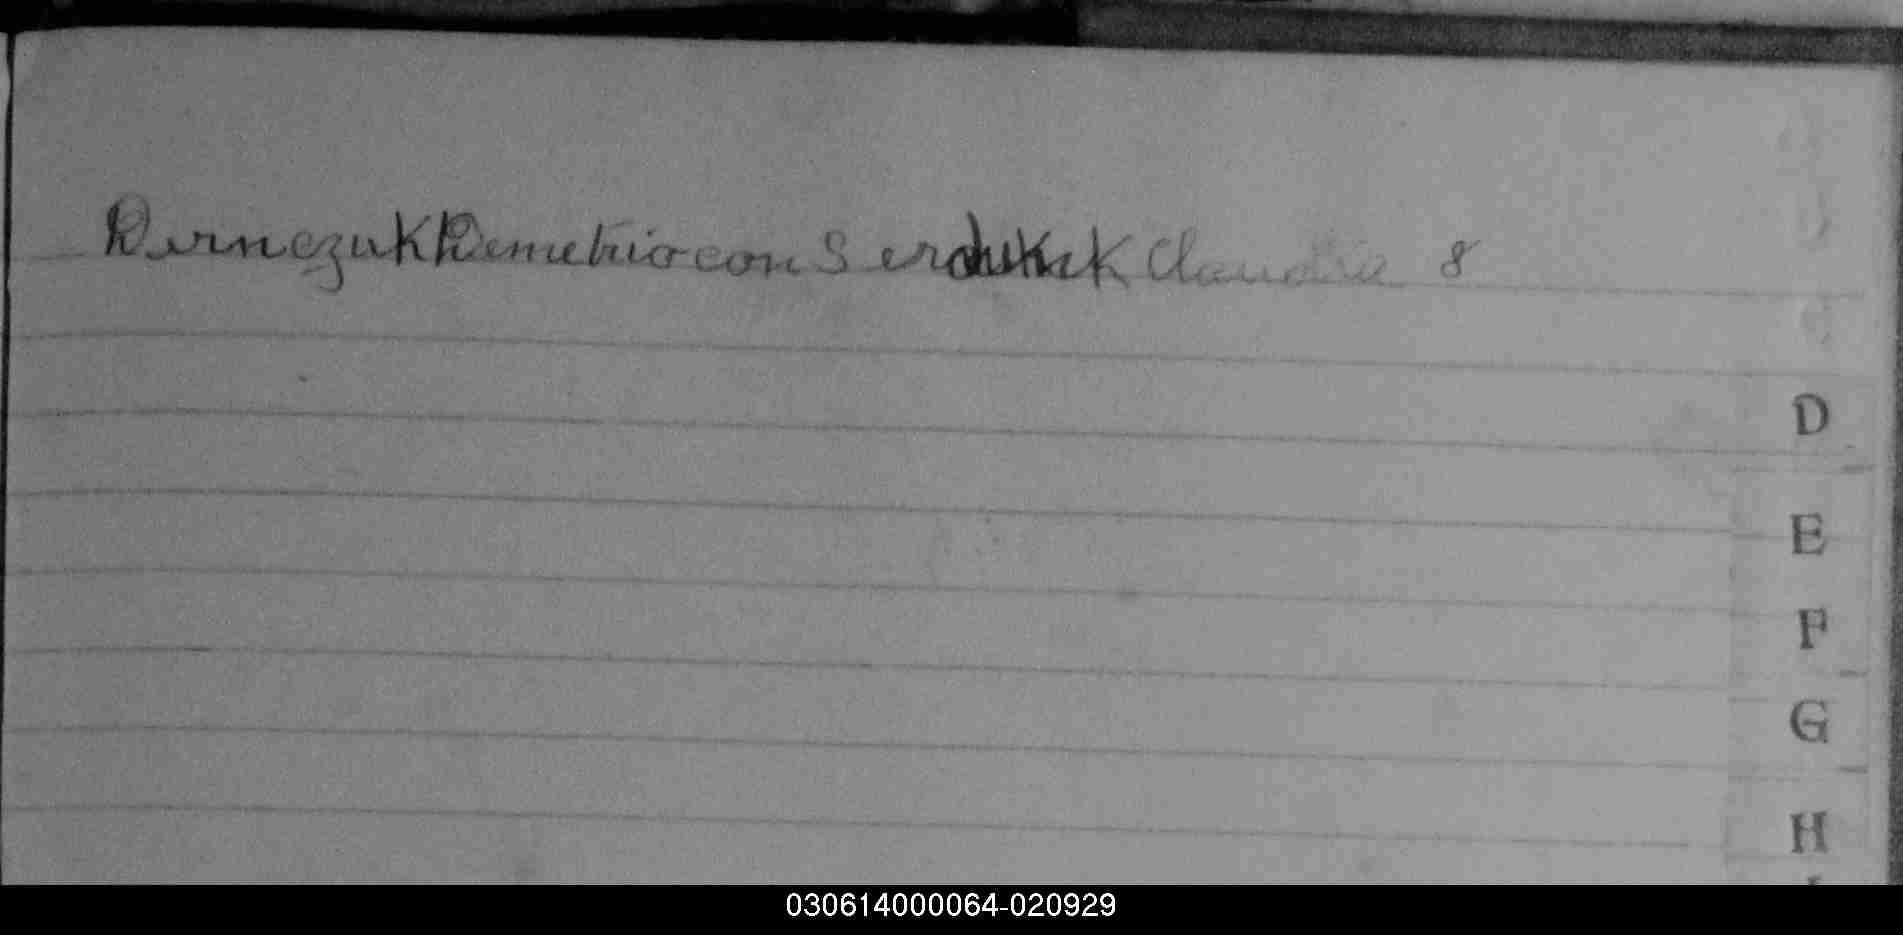 Dernczuk Demetrio con Serdiuk Claudia 8
D
E
F
G
H
030614000064-020929